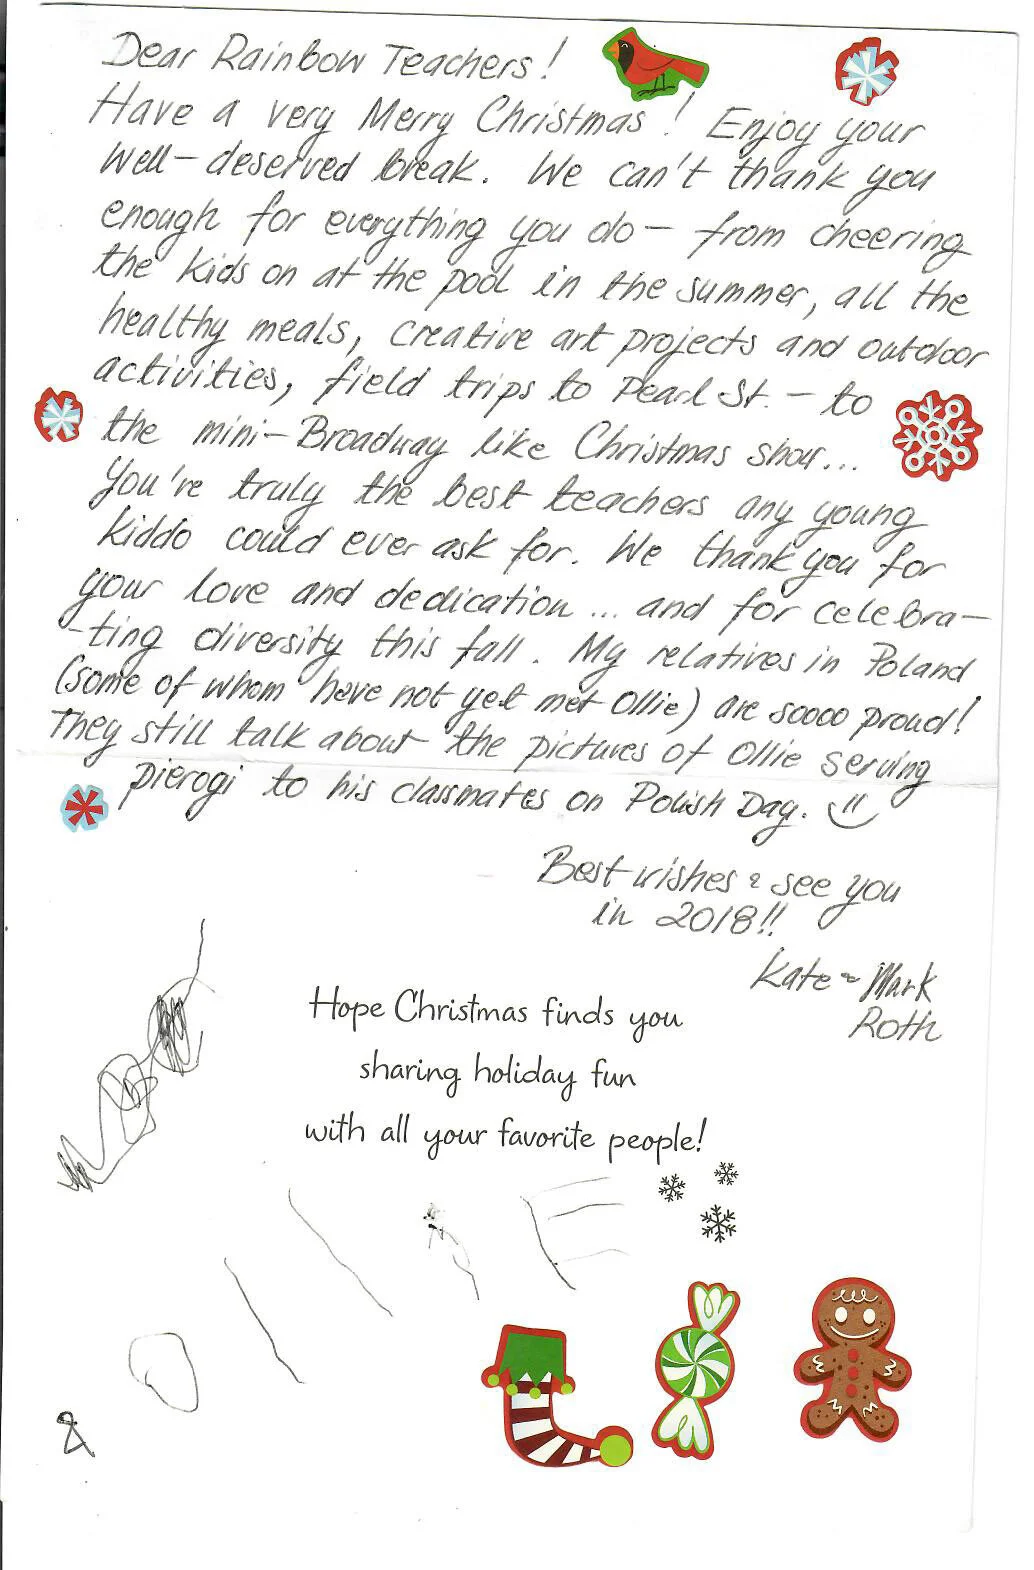 Dear Rainbow Teachers!
Have a very Merry Christmas! Enjoy your
well-deserved break. We can't thank you
enough for everything you do - from cheering
the kids on at the pool in the summer, all the
healthy meals, creative art projects and outdoor
activities, field trips to Pearl St. - to
the mini-Broadway like Christmas show...
You're truly the best teachers any young
kiddo could ever ask for. We thank you for
your love and dedication ... and for celebra-
-ting diversity this fall. My relatives in Poland
(some of whom have not yet met Ollie) are soooo proud!
They still talk about the pictures of Ollie serving
pierogi to his classmates on Polish Day.
Best wishes & see you
in 2018!!
Kate & Mark
Roth
Hope Christmas finds you
sharing holiday fun
with all your favorite people!
& OlliE